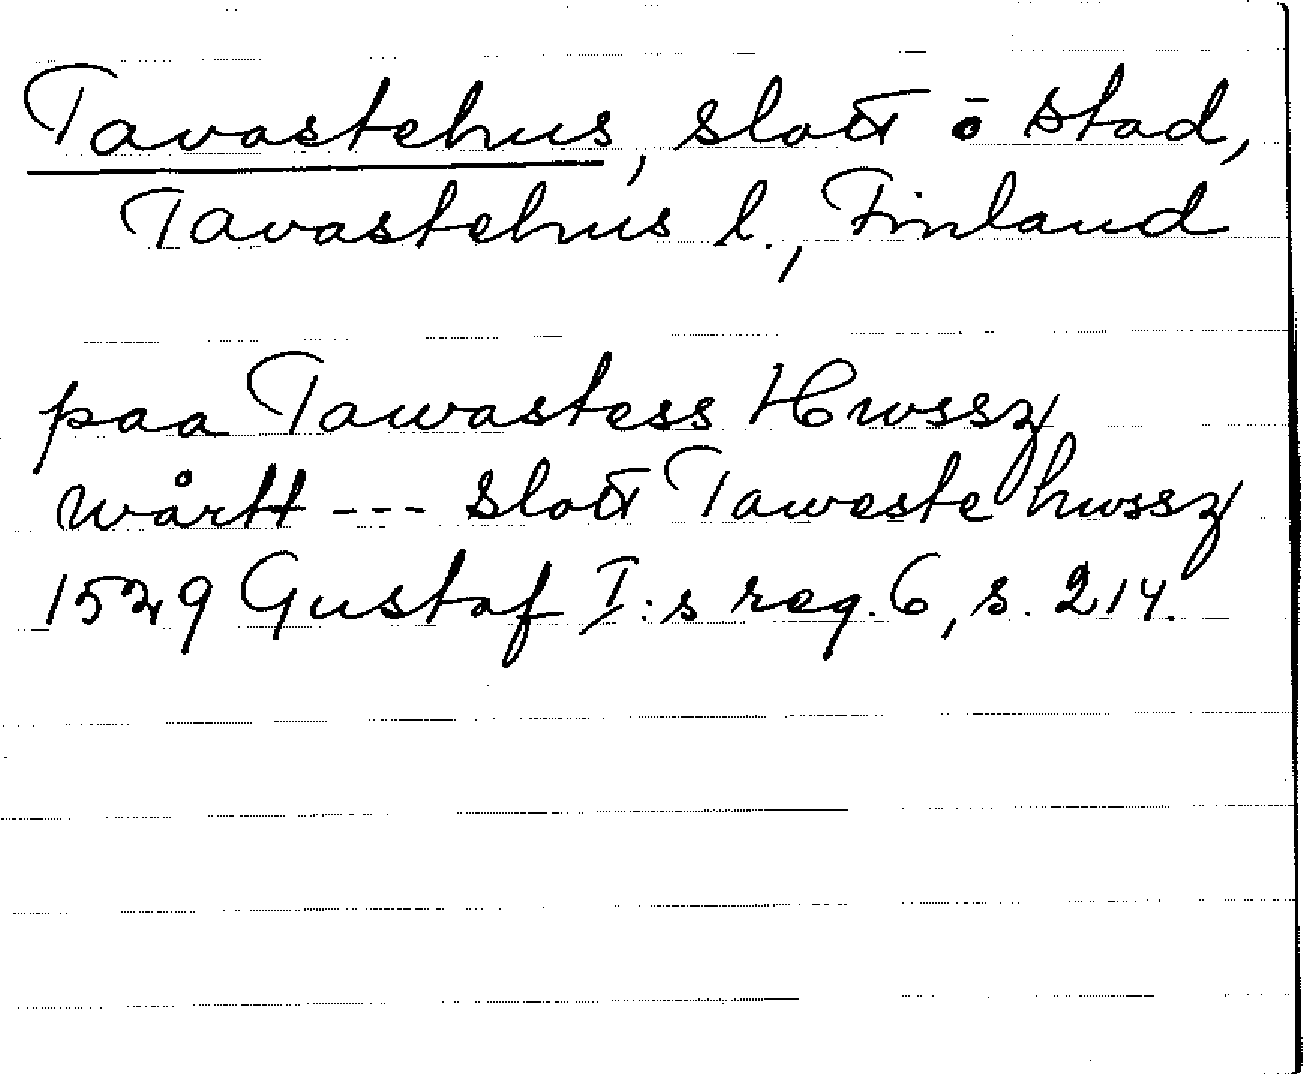 Tavastehus, slott o stad,
Tavastehus l., Finland
paa Tawastess Hwssz
wårtt --- slott Taweste hwssz
1529 Gustaf I:s reg. 6, s. 214.